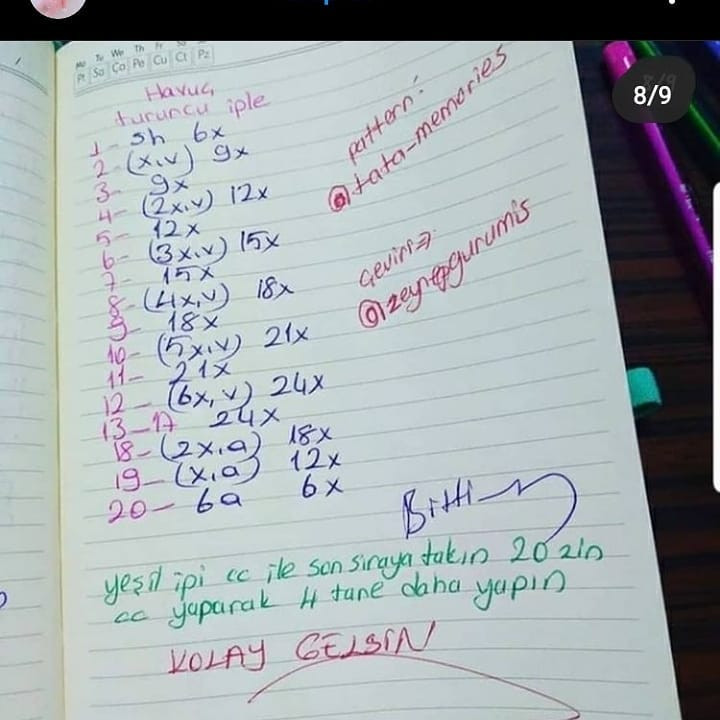 8/9
Mo Tu We Th Fr Sa
Pt Sa Ça Pe Cu Ct Pz
Havuç
turuncu iple
1- sh 6x
2- (x,v) 9x
3- 9x
4- (2x,v) 12x
5- 12x
6- (3x,v) 15x
7- 15x
8- (4x,v) 18x
9- 18x
10- (5x,v) 21x
11- 21x
12- (6x,v) 24x
13-17 24x
18- (2x,a) 18x
19- (x,a) 12x
20- 6a 6x
Bitti
pattern:
@tata-memories
çeviri⇒
@zeynepgurumis
yeşil ipi cc ile son sıraya takın 20 zin
cc yaparak 4 tane daha yapın
KOLAY GELSİN